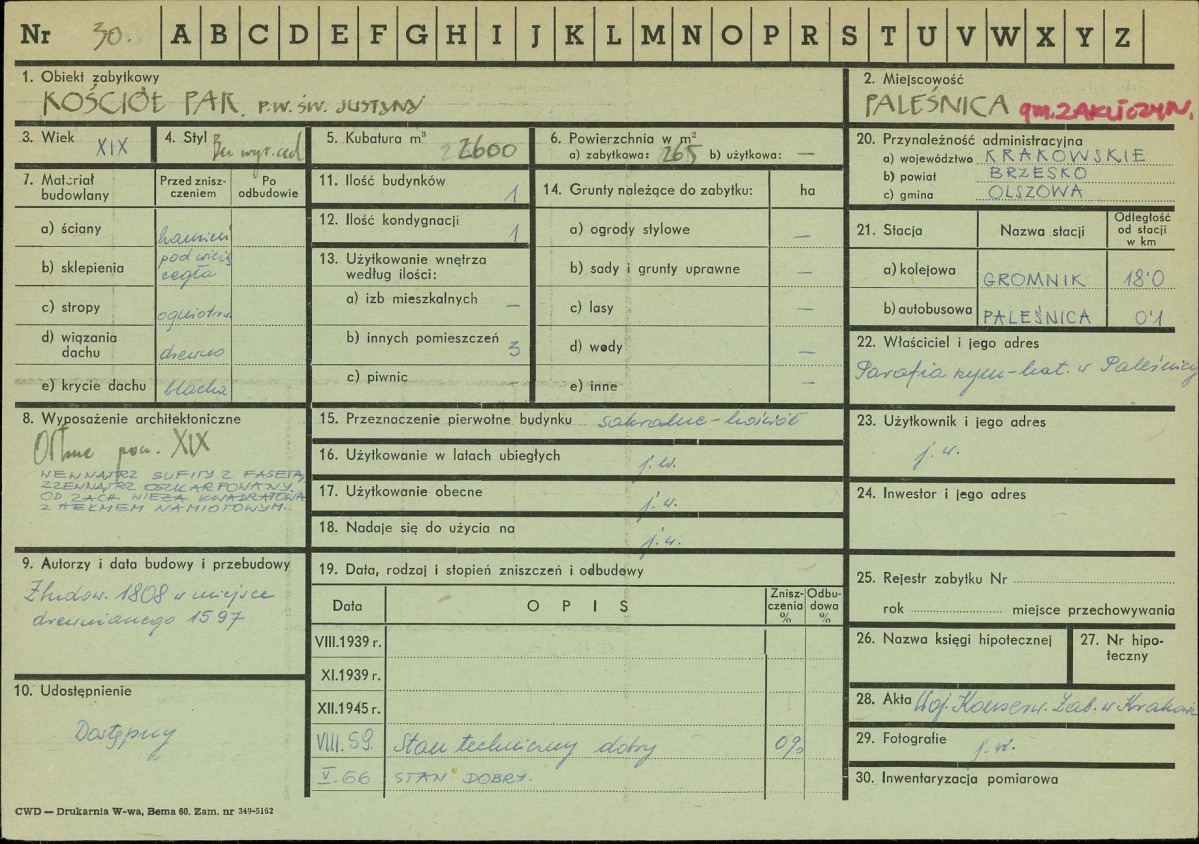 Nr 30. A B C D E F G H I J K L M N O P R S T U V W X Y Z
1. Obiekt zabytkowy
KOŚCIÓŁ PAR. P.W. ŚW. JUSTYNY
2. Miejscowość
PALEŚNICA gm. ZAKLICZYN.
3. Wiek XIX
4. Styl Bez wyr. cech
5. Kubatura m³ 2600
6. Powierzchnia w m²
a) zabytkowa: 265 b) użytkowa: —
7. Materiał budowlany
Przed znisz-
czeniem
Po
odbudowie
a) ściany kamień
b) sklepienia pod wieżą
cegła
c) stropy ogniotrw.
d) wiązania
dachu drewno
e) krycie dachu blacha
11. Ilość budynków 1
12. Ilość kondygnacji 1
13. Użytkowanie wnętrza
według ilości:
a) izb mieszkalnych —
b) innych pomieszczeń 3
c) piwnic —
14. Grunty należące do zabytku: ha
a) ogrody stylowe —
b) sady i grunty uprawne —
c) lasy —
d) wody —
e) inne —
20. Przynależność administracyjna
a) województwo KRAKOWSKIE
b) powiat BRZESKO
c) gmina OLSZOWA
21. Stacja Nazwa stacji
Odległość
od stacji
w km
a) kolejowa GROMNIK 18'0
b) autobusowa PALEŚNICA 0'1
22. Właściciel i jego adres
Parafia rzym-kat. w Paleśnicy
8. Wyposażenie architektoniczne
XIX
WEWNĄTRZ SUFITY Z FASETĄ,
ZZEWNĄTRZ OSZKARPOWANY.
OD ZACH. WIEŻA KWADRATOWA
Z HEŁMEM NAMIOTOWYM.
15. Przeznaczenie pierwotne budynku sakralne - kościół
16. Użytkowanie w latach ubiegłych j. w.
17. Użytkowanie obecne j. w.
18. Nadaje się do użycia na j. w.
23. Użytkownik i jego adres
j. w.
24. Inwestor i jego adres
9. Autorzy i data budowy i przebudowy
Zbudow. 1808 w miejsce
drewnianego 1597
10. Udostępnienie
Dostępny
19. Data, rodzaj i stopień zniszczeń i odbudowy
Data OPIS
Znisz-
czenia
%
Odbu-
dowa
%
VIII.1939 r.
XI.1939 r.
XII.1945 r.
VIII. 59. Stan techniczny dobry 0%
V. 66 STAN DOBRY.
25. Rejestr zabytku Nr
rok miejsce przechowywania
26. Nazwa księgi hipotecznej
27. Nr hipo-
teczny
28. Akta Woj. Konserw. Zab. w Krakowie
29. Fotografie j. w.
30. Inwentaryzacja pomiarowa
CWD — Drukarnia W-wa, Bema 60. Zam. nr 349-5162